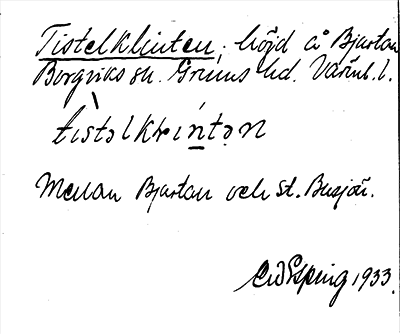 Tistelklinten, höjd å Bjartan
Borgviks sn. Grums hd. Värml. l.
tìstəlkḷíntən
Mellan Bjurtan och St. Busjön.
1933.